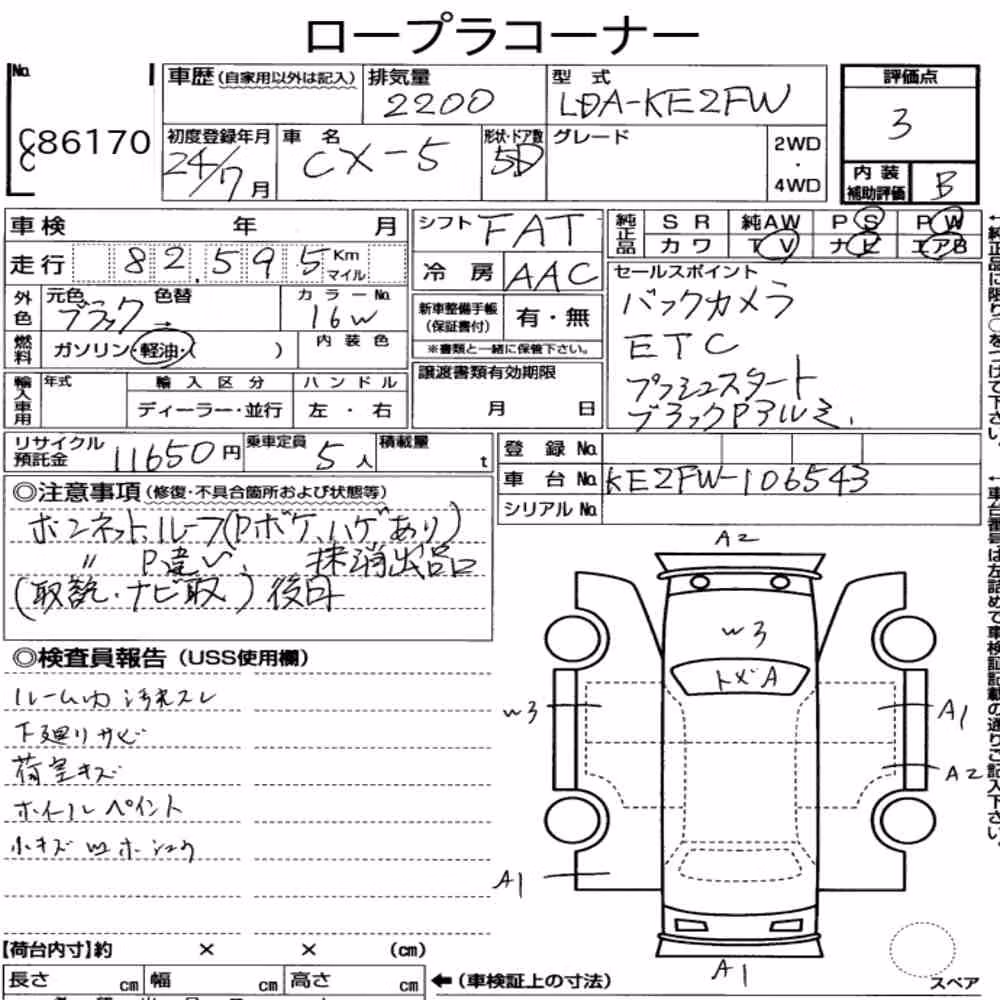 ロープラコーナー
No.
86170
車歴(自家用以外は記入)
排気量
2200
型式
LDA-KE2FW
評価点
3
初度登録年月
24/7月
車名
CX-5
形状・ドア数
5D
グレード
2WD
・
4WD
内装
補助評価
B
車検 年 月
走行 82,595 Km
マイル
シフト FAT
冷房 AAC
純正品
SR 純AW PS PW
カワ TV ナビ エアB
外色
元色 色替
ブラック →
カラーNo.
16W
燃料
ガソリン・軽油・( )
内装色
新車整備手帳
(保証書付)
有・無
※書類と一緒に保管下さい。
セールスポイント
バックカメラ
ETC
プッシュスタート
ブラックPアルミ.
輸入車用
年式
輸入区分
ディーラー・並行
ハンドル
左・右
譲渡書類有効期限
月 日
リサイクル
預託金
11650円
乗車定員
5人
積載量
t
登録No.
車台No. KE2FW-106543
シリアルNo.
◎注意事項(修復・不具合箇所および状態等)
ボンネット、ルーフ(Pボケ、ハゲあり)
〃 P違い、 抹消出品
(取説・ナビ取)後日
◎検査員報告(USS使用欄)
ルーム内 汚れスレ
下廻りサビ
荷室キズ
ホイールペイント
小キズ
A2
W3
トメA
W3
A1
A2
A1
A1
スペア
【荷台内寸】約 × × (cm)
長さ cm 幅 cm 高さ cm
←(車検証上の寸法)
←純正品に限り○をつけて下さい。
←車台番号は左詰めで車検証記載の通りご記入下さい。